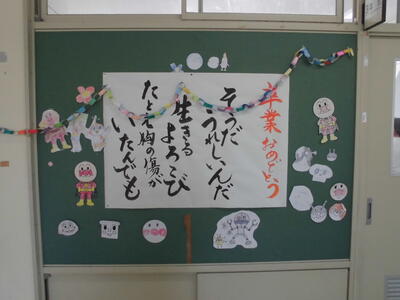 卒業おめでとう
そうだ
うれしいんだ
生きる
よろこび
たとえ胸の傷が
いたんでも